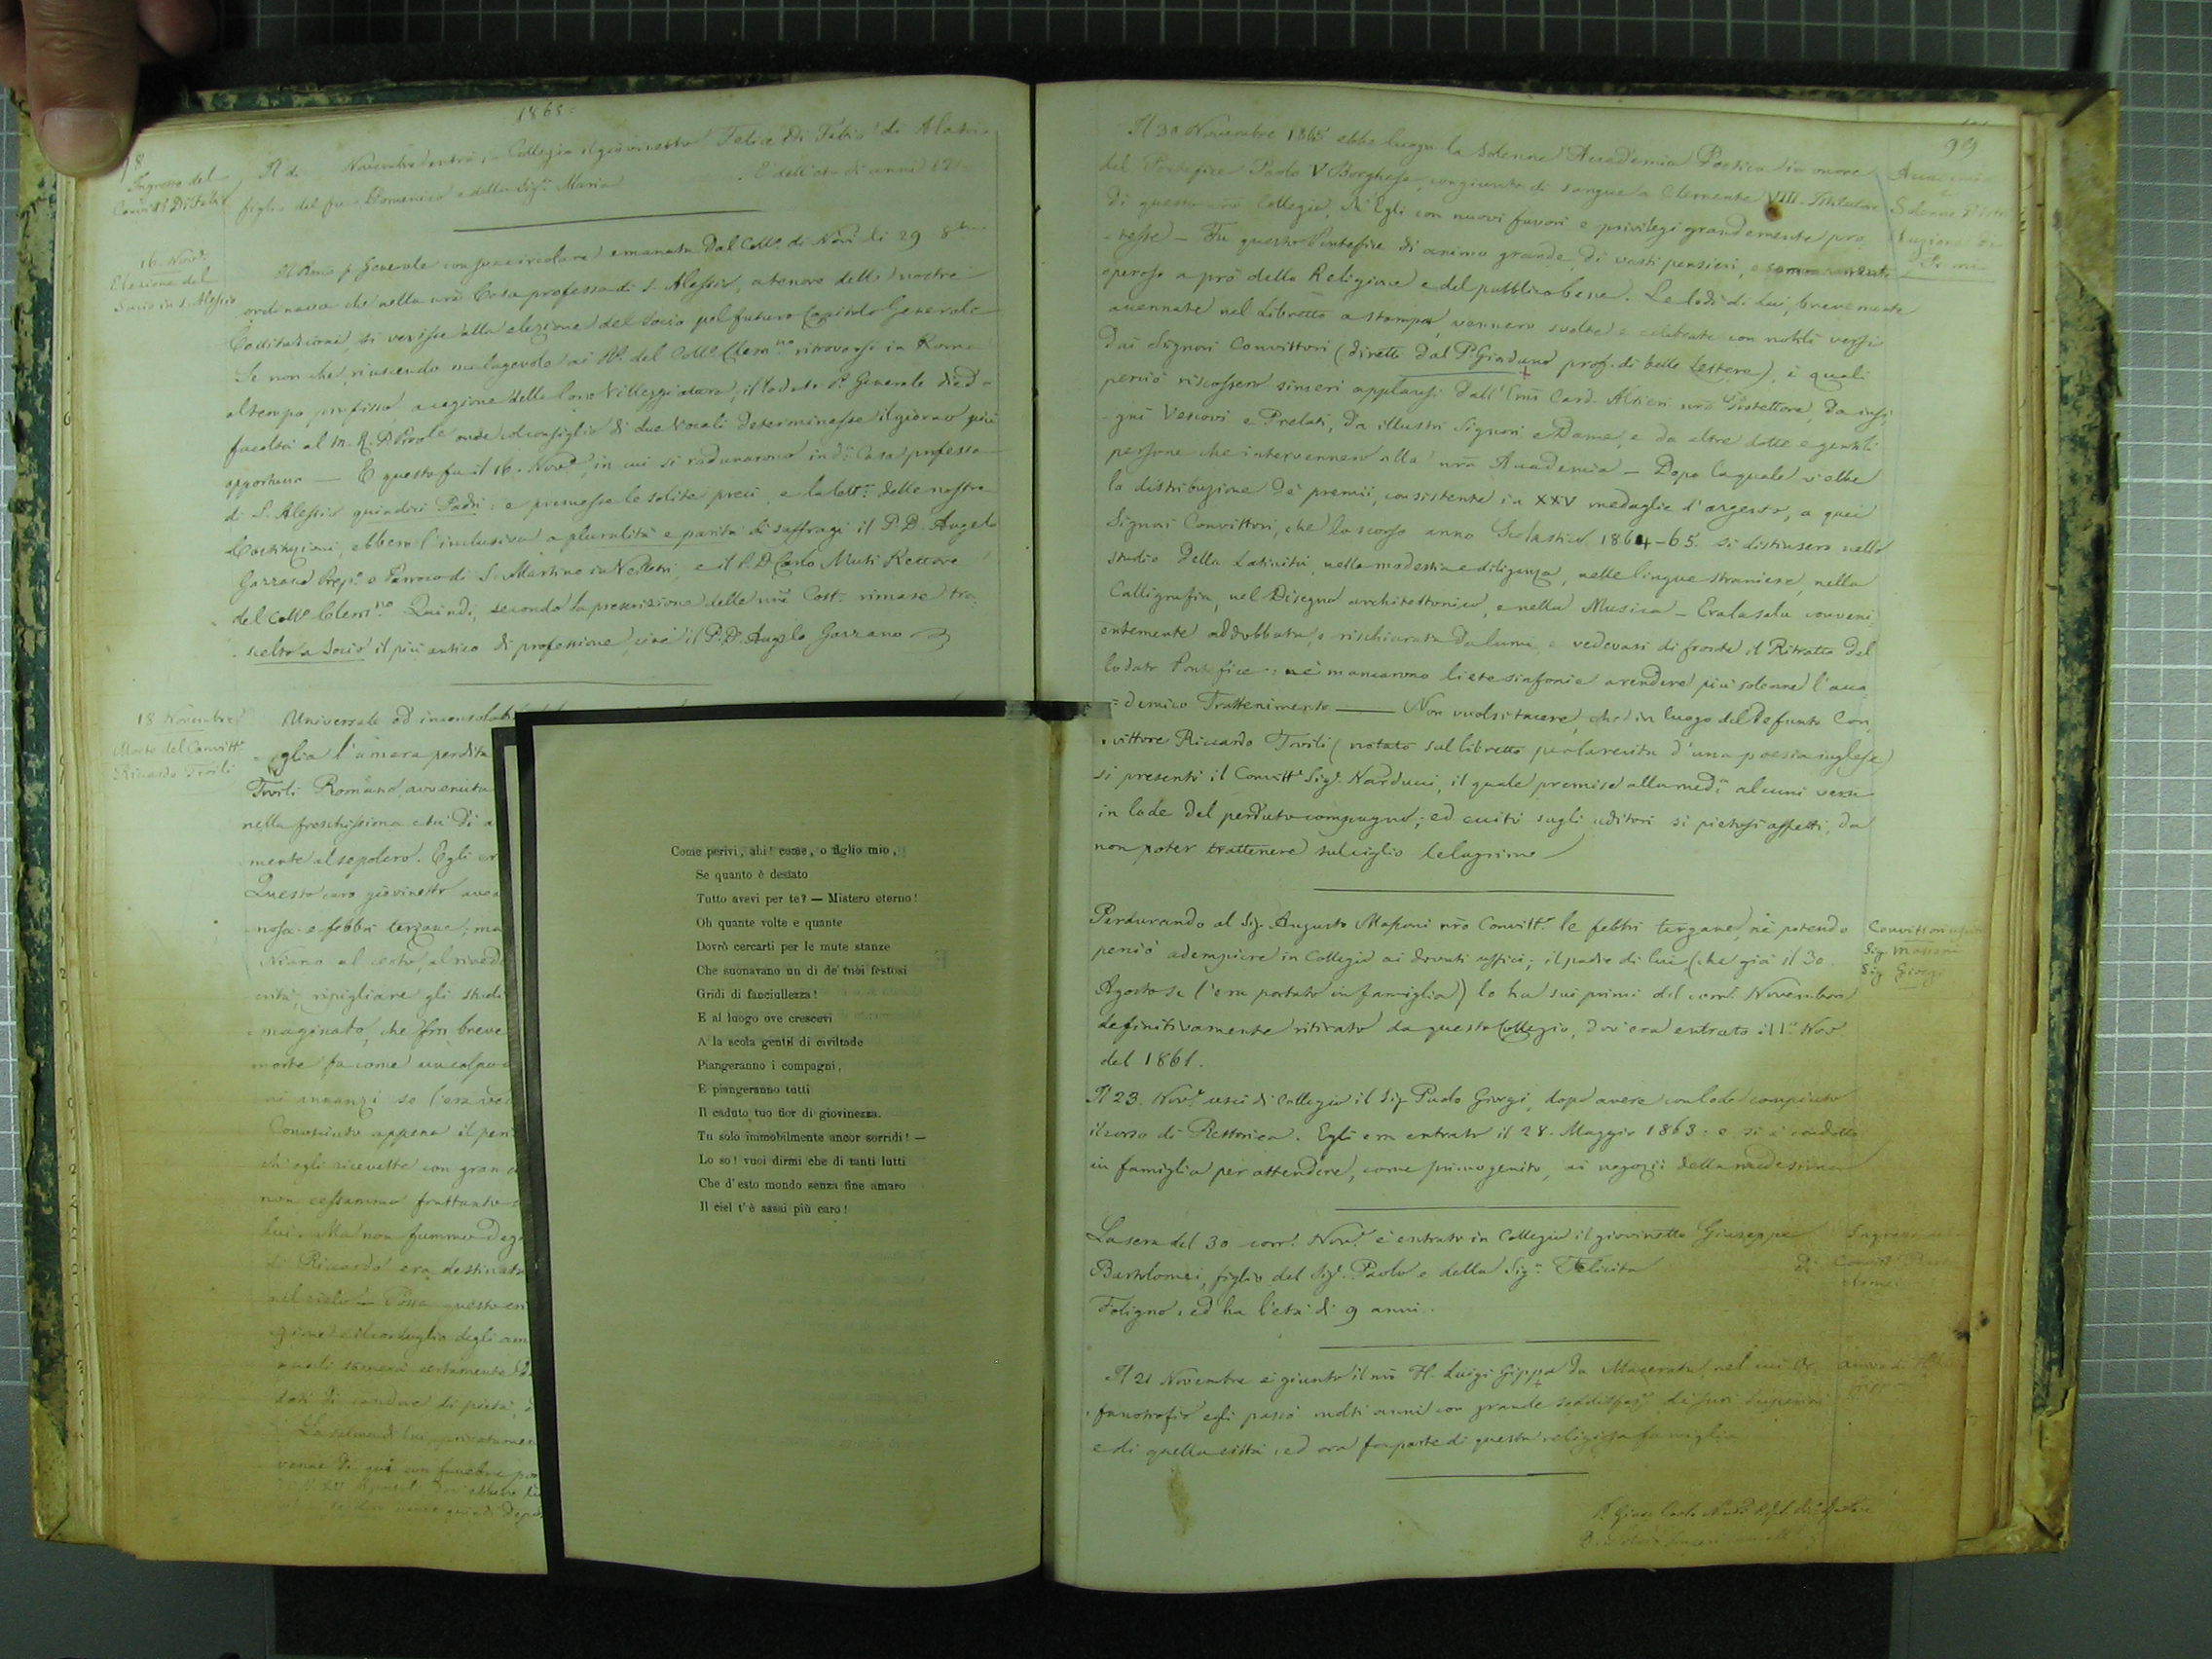 1865
98
Ingresso del
Convitt. Di Fabio
Il dì Novembre entrò in Collegio il giovinetto Felice Di Fabio di Alatri
figlio del fu Domenico e della Sig.ª Maria . È dell'età di anni 12
16 Nov.e
Elezione del
Socio in S. Alessio
Il Rmo P. Generale con sua circolare emanata dal Coll.o di Novi li 29 8bre
ordinava che nella nrã Casa professa di S. Alessio, a tenore delle nostre
Costituzioni, si venisse alla elezione del Socio pel futuro Capitolo Generale
Se non che, riuscendo malagevole ai PP. del Coll.o Clem.no ritrovarsi in Roma
al tempo prefisso, a cagione della loro Villeggiatura, il lodato P. Generale diede
facoltà al M. R. P. Prov.le onde col consiglio di due Vocali determinasse il giorno più
opportuno — E questo fu il 16. Nov.e, in cui si radunarono in d.a Casa professa
di S. Alessio quindici Padri: e premesse le solite preci, e la lett.a delle nostre
Costituzioni, ebbero l'inclusiva a pluralità e parità di suffragi il P. D. Angelo
Garzano Prep.o e Parroco di S. Martino in Velletri, e il P. D. Carlo Muti Rettore
del Coll.o Clem.no Quindi, secondo la prescrizione delle nrẽ Cost. rimase tra=
scelto a Socio il più antico di professione, cioè il P. D. Angelo Garzano
18 Novembre
Morte del Convitt.
Riccardo Troili
Universale ed inconsolab
glia l'amara perdita
Troili Romano, avvenuta
nella freschissima età di a
mente al sepolcro. Egli er
Questo caro giovinetto avea
nosa e febbri terzane; ma
Niuno al certo, al rived
erità, ripigliare gli studi
maginato, che fra breve
morte fu come un colpo
ni innanzi se l'era ved
Conosciuto appena il peri
ch'egli ricevette con gran
non cessammo frattanto
lui. Ma non fummo deg
di Riccardo era destinata
nel cielo! — Possa questo
zione e il cordoglio degli am
quali serverà certamente
doti di candore di pietà,
La salma di lui, privatamen
venne di qui con funebre
Come perivi, ahi! come, o figlio mio,
Se quanto è destato
Tutto avevi per te? — Mistero eterno!
Oh quante volte e quante
Dovrò cercarti per le mute stanze
Che suonavano un dì de' tuoi festosi
Gridi di fanciullezza!
E al luogo ove crescevi
A la scola gentil di civiltade
Piangeranno i compagni,
E piangeranno tutti
Il caduto tuo fior di giovinezza.
Tu solo immobilmente ancor sorridi! —
Lo so! vuoi dirmi che di tanti lutti
Che d'esto mondo senza fine amaro
Il ciel t'è assai più caro!
99
Accademia
e
Solenne Distri
buzione de'
Premi
Il 30 Novembre 1865 ebbe luogo la solenne Accademia Poetica in onore
del Pontefice Paolo V Borghese, congiunto di sangue a Clemente VIII. Istitutore
di questo nrõ Collegio, ch'Egli con nuovi favori e privilegi grandemente pro=
=tesse — Fu questo Pontefice di animo grande, di vasti pensieri, e sommamente
operoso a prò della Religione e del pubblico bene. Le lodi di Lui, brevemente
accennate nel Libretto a stampa, vennero svolte e celebrate con nobili versi
dai Signori Convittori (diretti dal P. Giordano prof. di belle Lettere), i quali
perciò riscossero sinceri applausi dall'Emõ Card. Altieri nrõ Protettore, da insi=
=gni Vescovi e Prelati, da illustri Signori e Dame, e da altre dotte e gentili
persone che intervennero alla nrã Accademia — Dopo la quale vi ebbe
la distribuzione de' premii, consistente in XXV medaglie d'argento, a quei
Signori Convittori, che lo scorso anno Scolastico 1864-65. si distinsero nello
studio della Latinità, nella modestia e diligenza, nelle lingue straniere, nella
Calligrafia, nel Disegno architettonico, e nella Musica — Era la sala conveni=
entemente addobbata, e rischiarata da lumi, e vedevasi di fronte il Ritratto del
lodato Pontefice: nè mancarono liete sinfonie a rendere più solenne l'acca=
=demico Trattenimento — Non vuolsi tacere, che in luogo del defunto Con=
vittore Riccardo Troili (notato sul libretto per la recita d'una poesia inglese)
si presentò il Convitt.e Sig.r Narducci, il quale premise alla med.a alcuni versi
in lode del perduto compagno; ed eccitò sugli uditori sì pietosi affetti, da
non poter trattenere sul ciglio le lagrime
Convittori usciti
Sig. Massoni
Sig. Giorgi
Perdurando al Sig. Augusto Massoni nrõ Convitt.e le febbri terzane, nè potendo
perciò adempiere in Collegio ai dovuti uffici; il padre di lui (che già il 30
Agosto se l'era portato in famiglia) lo ha sui primi del corr.e Novembre
definitivamente ritirato da questo Collegio, dov'era entrato il 1.o Nov.
del 1861.
Il 23. Nov.e uscì di Collegio il Sig. Paolo Giorgi, dopo avere con lode compiuto
il corso di Rettorica. Egli era entrato il 28. Maggio 1863: e si è condotto
in famiglia per attendere, come primogenito, ai negozi della medesima
Ingresso del
Convitt. Barto
lomei
La sera del 30 corr.e Nov.e è entrato in Collegio il giovinetto Giuseppe
Bartolomei, figlio del Sig.r Paolo e della Sig.ra Felicita di
Foligno, ed ha l'età di 9 anni.
Il 21 Novembre è giunto il nrõ F. Luigi Gippa da Macerata, nel cui Or=
fanotrofio egli passò molti anni con grande soddisfaz.e de' suoi Superiori
e di quella città, ed ora fa parte di questa religiosa famiglia